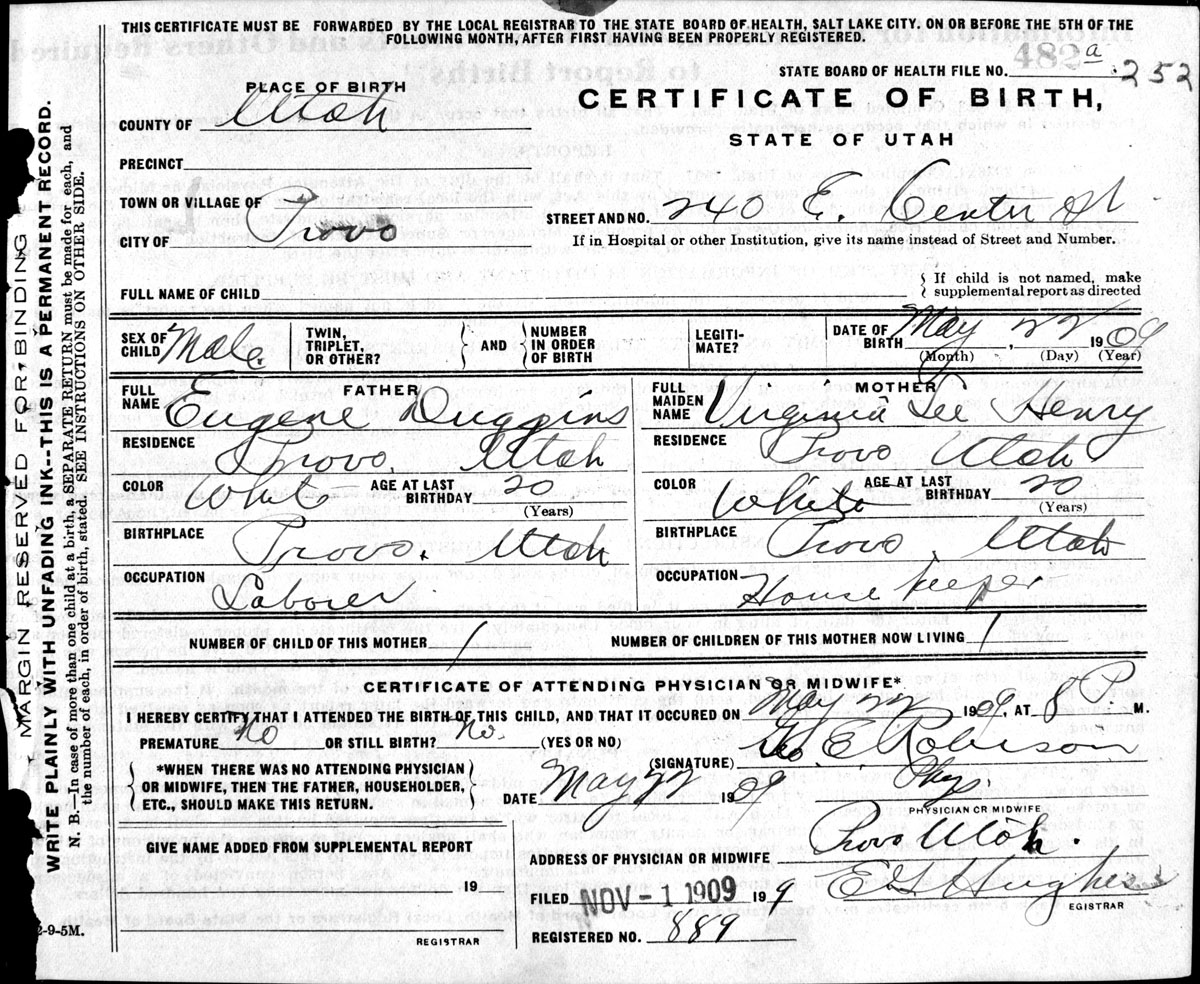 THIS CERTIFICATE MUST BE FORWARDED BY THE LOCAL REGISTRAR TO THE STATE BOARD OF HEALTH, SALT LAKE CITY. ON OR BEFORE THE 5TH OF THE
FOLLOWING MONTH, AFTER FIRST HAVING BEEN PROPERLY REGISTERED.
482 a
STATE BOARD OF HEALTH FILE NO. 252
PLACE OF BIRTH
CERTIFICATE OF BIRTH,
COUNTY OF Utah
STATE OF UTAH
PRECINCT
TOWN OR VILLAGE OF
STREET AND NO. 240 E. Center St
CITY OF Provo
If in Hospital or other Institution, give its name instead of Street and Number.
FULL NAME OF CHILD
If child is not named, make
supplemental report as directed
SEX OF CHILD Male
TWIN, TRIPLET, OR OTHER?
AND
NUMBER IN ORDER OF BIRTH
LEGITI-MATE?
DATE OF BIRTH May, 22 1909
(Month) (Day) (Year)
FATHER
FULL NAME Eugene Duggins
RESIDENCE Provo, Utah
COLOR White AGE AT LAST BIRTHDAY 20
(Years)
BIRTHPLACE Provo, Utah
OCCUPATION Laborer
MOTHER
FULL MAIDEN NAME Virginia Lee Henry
RESIDENCE Provo Utah
COLOR White AGE AT LAST BIRTHDAY 20
(Years)
BIRTHPLACE Provo, Utah
OCCUPATION House keeper
NUMBER OF CHILD OF THIS MOTHER 1 NUMBER OF CHILDREN OF THIS MOTHER NOW LIVING 1
CERTIFICATE OF ATTENDING PHYSICIAN OR MIDWIFE*
I HEREBY CERTIFY THAT I ATTENDED THE BIRTH OF THIS CHILD, AND THAT IT OCCURED ON May 22 1909, AT 8 P. M.
PREMATURE No OR STILL BIRTH? No. (YES OR NO)
(SIGNATURE) Geo. E. Robison
*WHEN THERE WAS NO ATTENDING PHYSICIAN
OR MIDWIFE, THEN THE FATHER, HOUSEHOLDER,
ETC., SHOULD MAKE THIS RETURN.
DATE May 22 1909
Phy
PHYSICIAN OR MIDWIFE
GIVE NAME ADDED FROM SUPPLEMENTAL REPORT
19
REGISTRAR
ADDRESS OF PHYSICIAN OR MIDWIFE Provo Utah.
FILED NOV - 1 1909 199
E G Hughes
EGISTRAR
REGISTERED NO. 889
2-9-5M.
MARGIN RESERVED FOR BINDING
WRITE PLAINLY WITH UNFADING INK--THIS IS A PERMANENT RECORD.
N. B.—In case of more than one child at a birth, SEPARATE RETURN must be made for each, and
the number of each, in order of birth, stated. SEE INSTRUCTIONS ON OTHER SIDE.